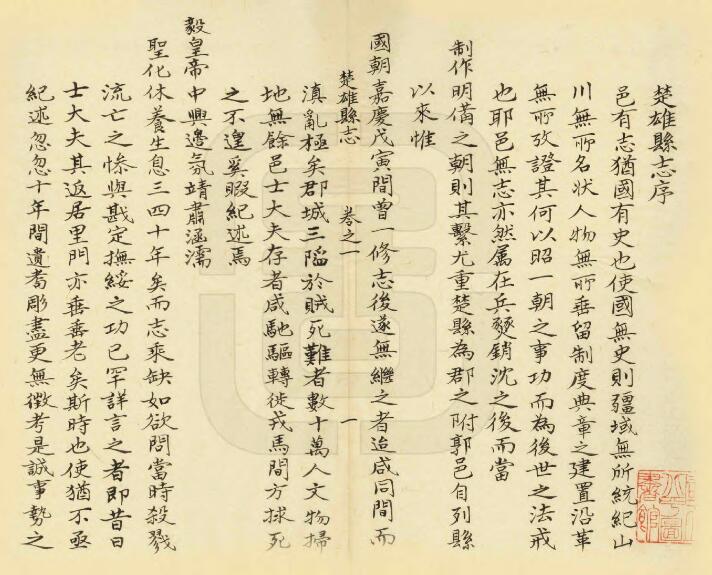 楚雄縣志序
邑有志猶國有史也使國無史則疆域無所統紀山
川無所名狀人物無所垂留制度典章之建置沿革
無所攷證其何以昭一朝之事功而為後世之法戒
也耶邑無志亦然属在兵燹銷沈之後而當
制作明備之朝則其繫尤重楚縣為郡之附郭邑自列縣
以來惟
國朝嘉慶戊寅間曾一修志後遂無繼之者迨咸同間而
楚雄縣志 卷之一 一
滇亂極矣郡城三陷於賊死難者數十萬人文物掃
地無餘邑士大夫存者咸馳驅轉徙戎馬間方捄死
之不遑奚暇紀述焉
毅皇帝中興邊氛靖肅涵濡
聖化休養生息三四十年矣而志乘缺如欲問當時殺戮
流亡之慘與戡定撫綏之功已罕詳言之者即昔日
士大夫其返居里門亦垂垂老矣斯時也使猶不亟
紀述忽忽十年間遺耆彫盡更無徵考是誠事勢之